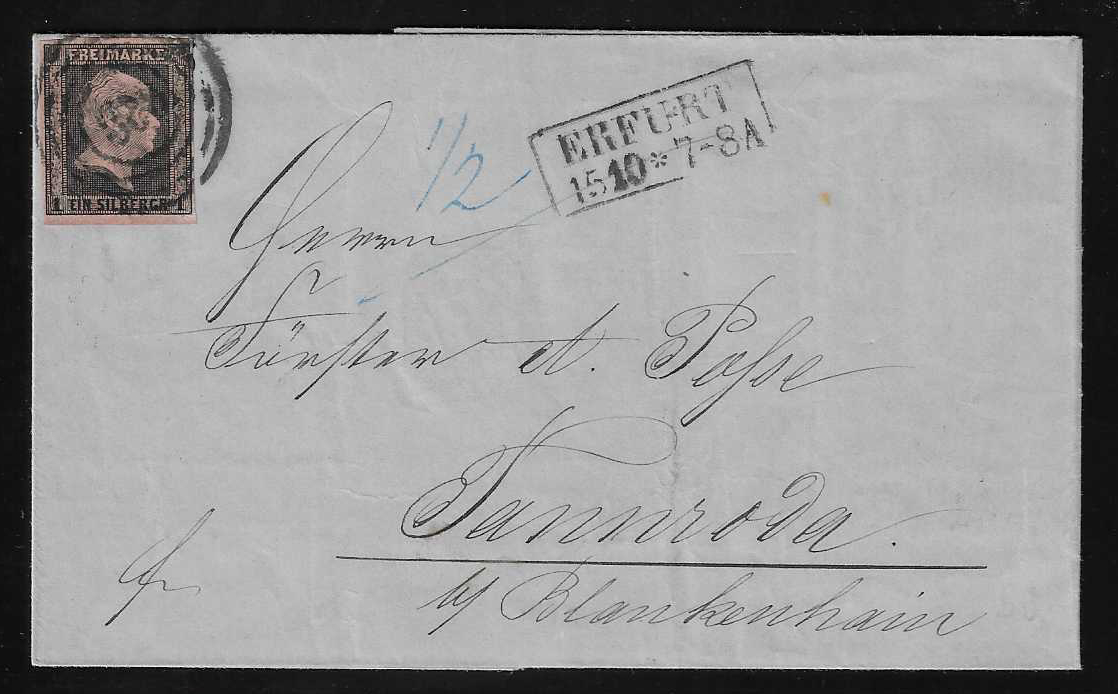 FREIMARKE
EIN SILBERGR.
1/2
ERFURT
15 10 * 7-8A
Herrn
Förster A. Posse
Tannroda.
b/ Blankenhain
fr